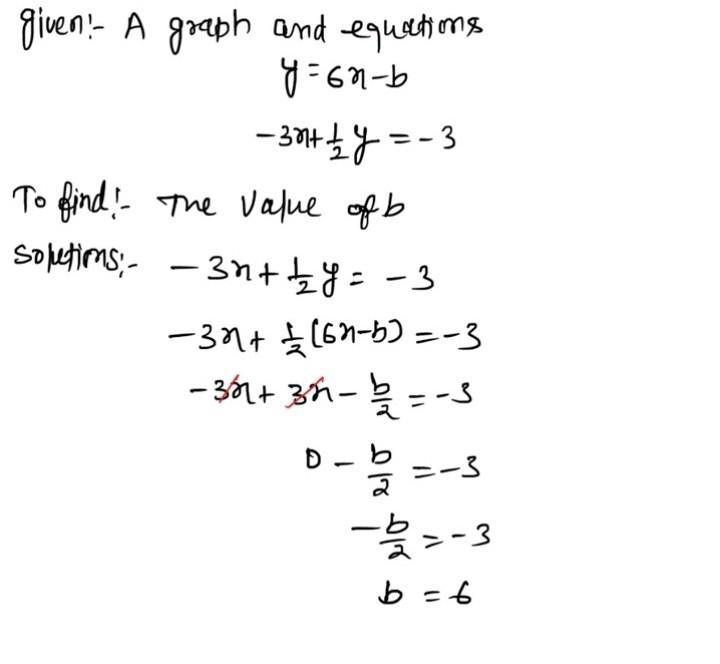 given:- A graph and equations
y = 6x - b
-3x + 1/2 y = -3
To find:- The value of b
Solutions:- -3x + 1/2 y = -3
-3x + 1/2 (6x - b) = -3
-3x + 3x - b/2 = -3
0 - b/2 = -3
-b/2 = -3
b = 6